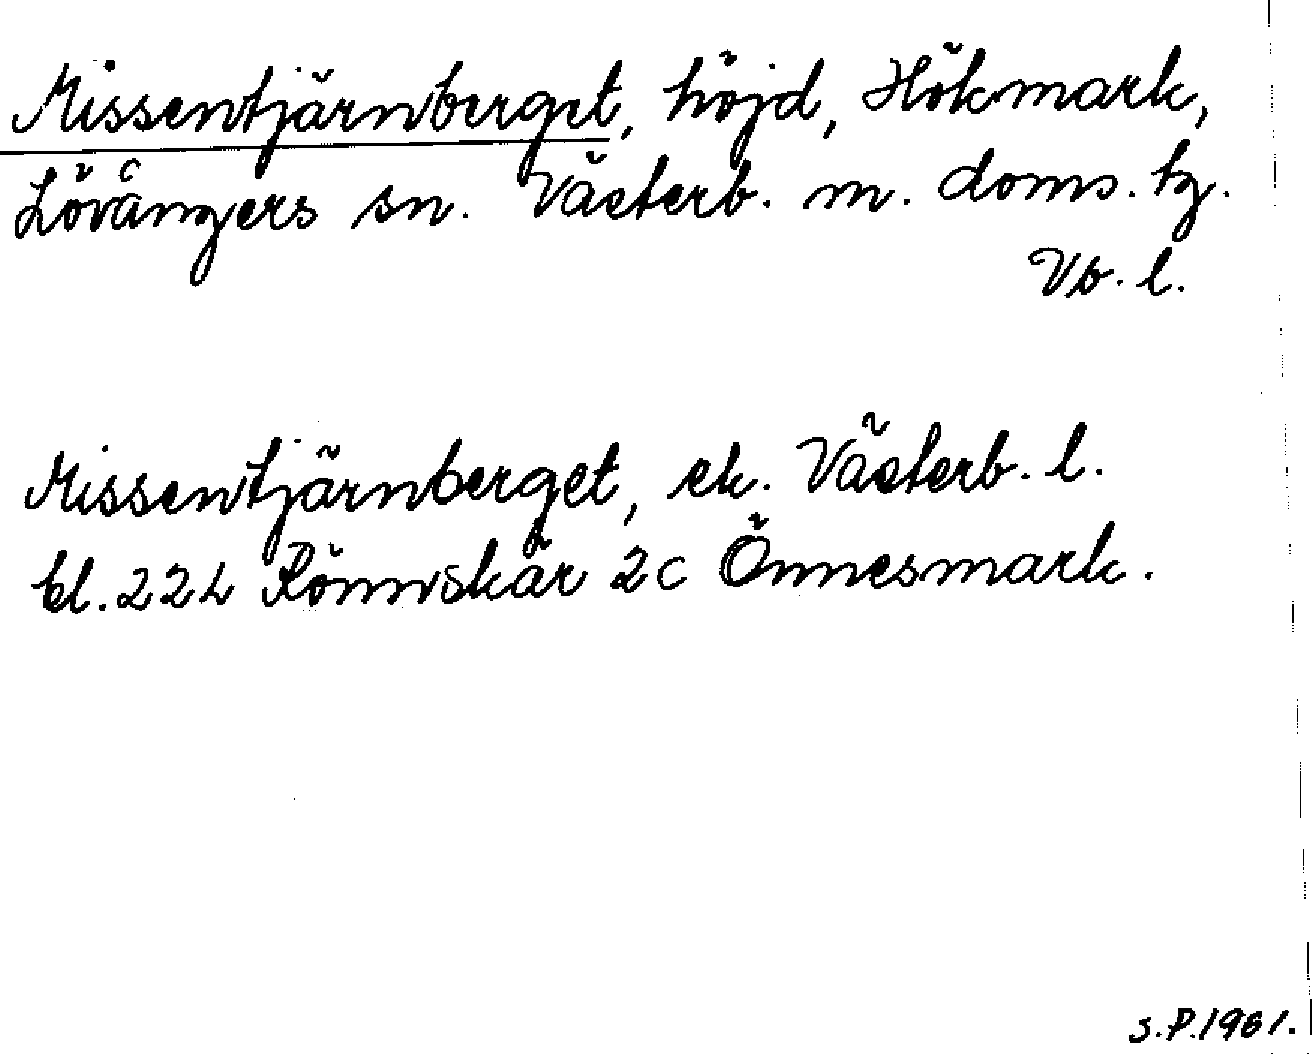 Missentjärnberget, höjd, Hökmark,
Lövångers sn. Västerb. m. doms. tg.
Vb. l.
Missentjärnberget, ek. Västerb. l.
bl. 22L Rönnskär 2c Önnesmark.
S.P. 1981.